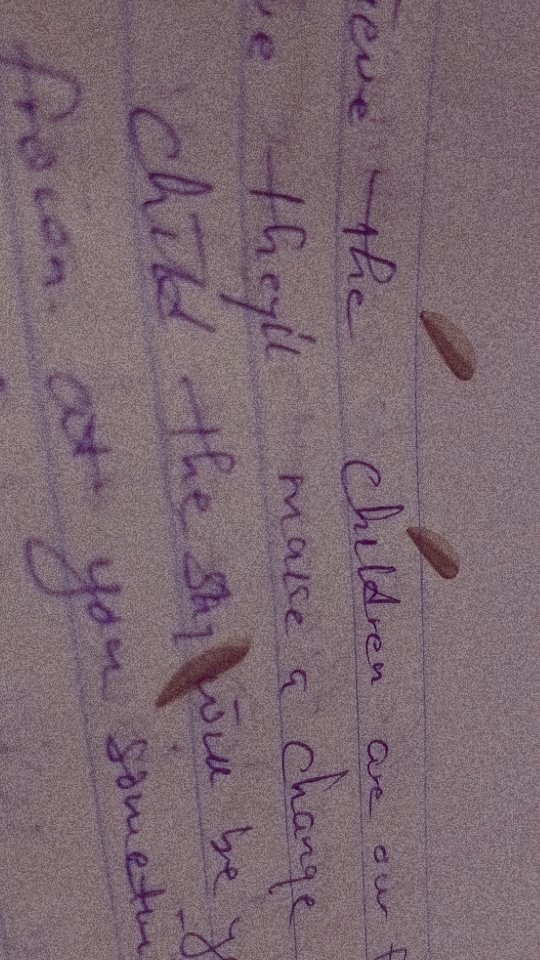 ieve the Children are our
ve they'll make a change
Child the sky will be
frown at you